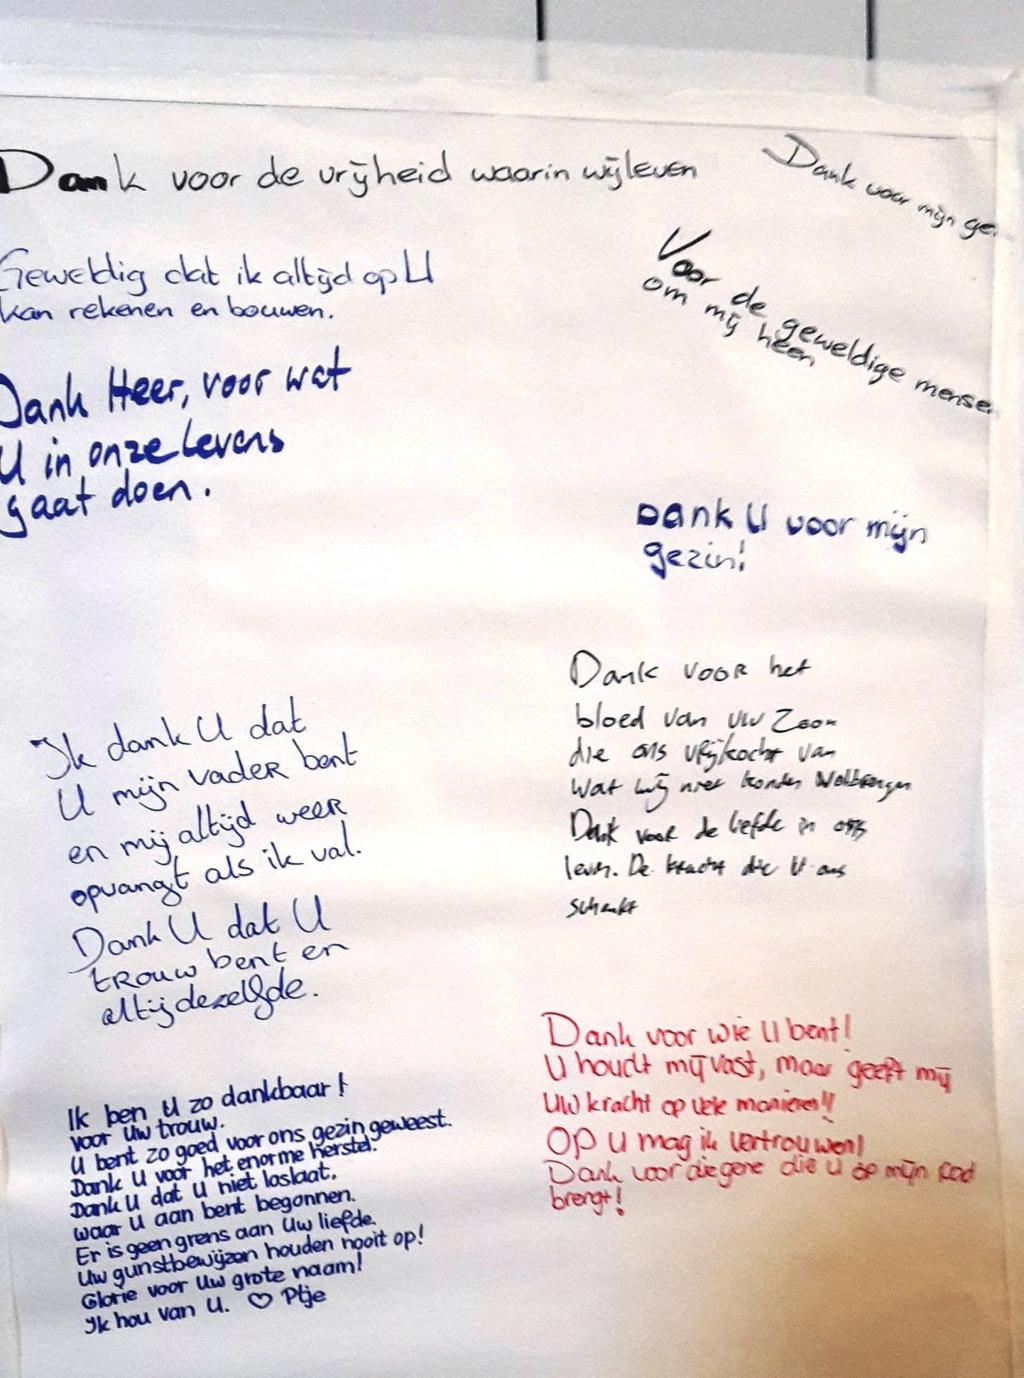 Dank voor de vrijheid waarin wij leven
Dank voor mijn
Geweldig dat ik altijd op U
kan rekenen en bouwen.
Voor de geweldige mense
om mij heen
Dank Heer, voor wat
U in onze levens
gaat doen.
Dank U voor mijn
gezin!
Dank voor het
bloed van uw Zoon
die ons vrijkocht van
wat wij niet konden volbrengen
Dank voor de liefde in ons
leven. De kracht die U ons
schenkt
Ik dank U dat
U mijn vader bent
en mij altijd weer
opvangt als ik val.
Dank U dat U
trouw bent en
altijd dezelfde.
Dank voor wie U bent!
U houdt mij vast, maar geeft mij
Uw kracht op vele manieren!!
Op U mag ik vertrouwen!
Dank voor diegene die U op mijn pad
brengt!
Ik ben U zo dankbaar!
voor Uw trouw.
U bent zo goed voor ons gezin geweest.
Dank U voor het enorme herstel.
Dank U dat U niet loslaat,
waar U aan bent begonnen.
Er is geen grens aan Uw liefde.
Uw gunstbewijzen houden nooit op!
Glorie voor Uw grote naam!
Ik hou van U. ♡ Ptje